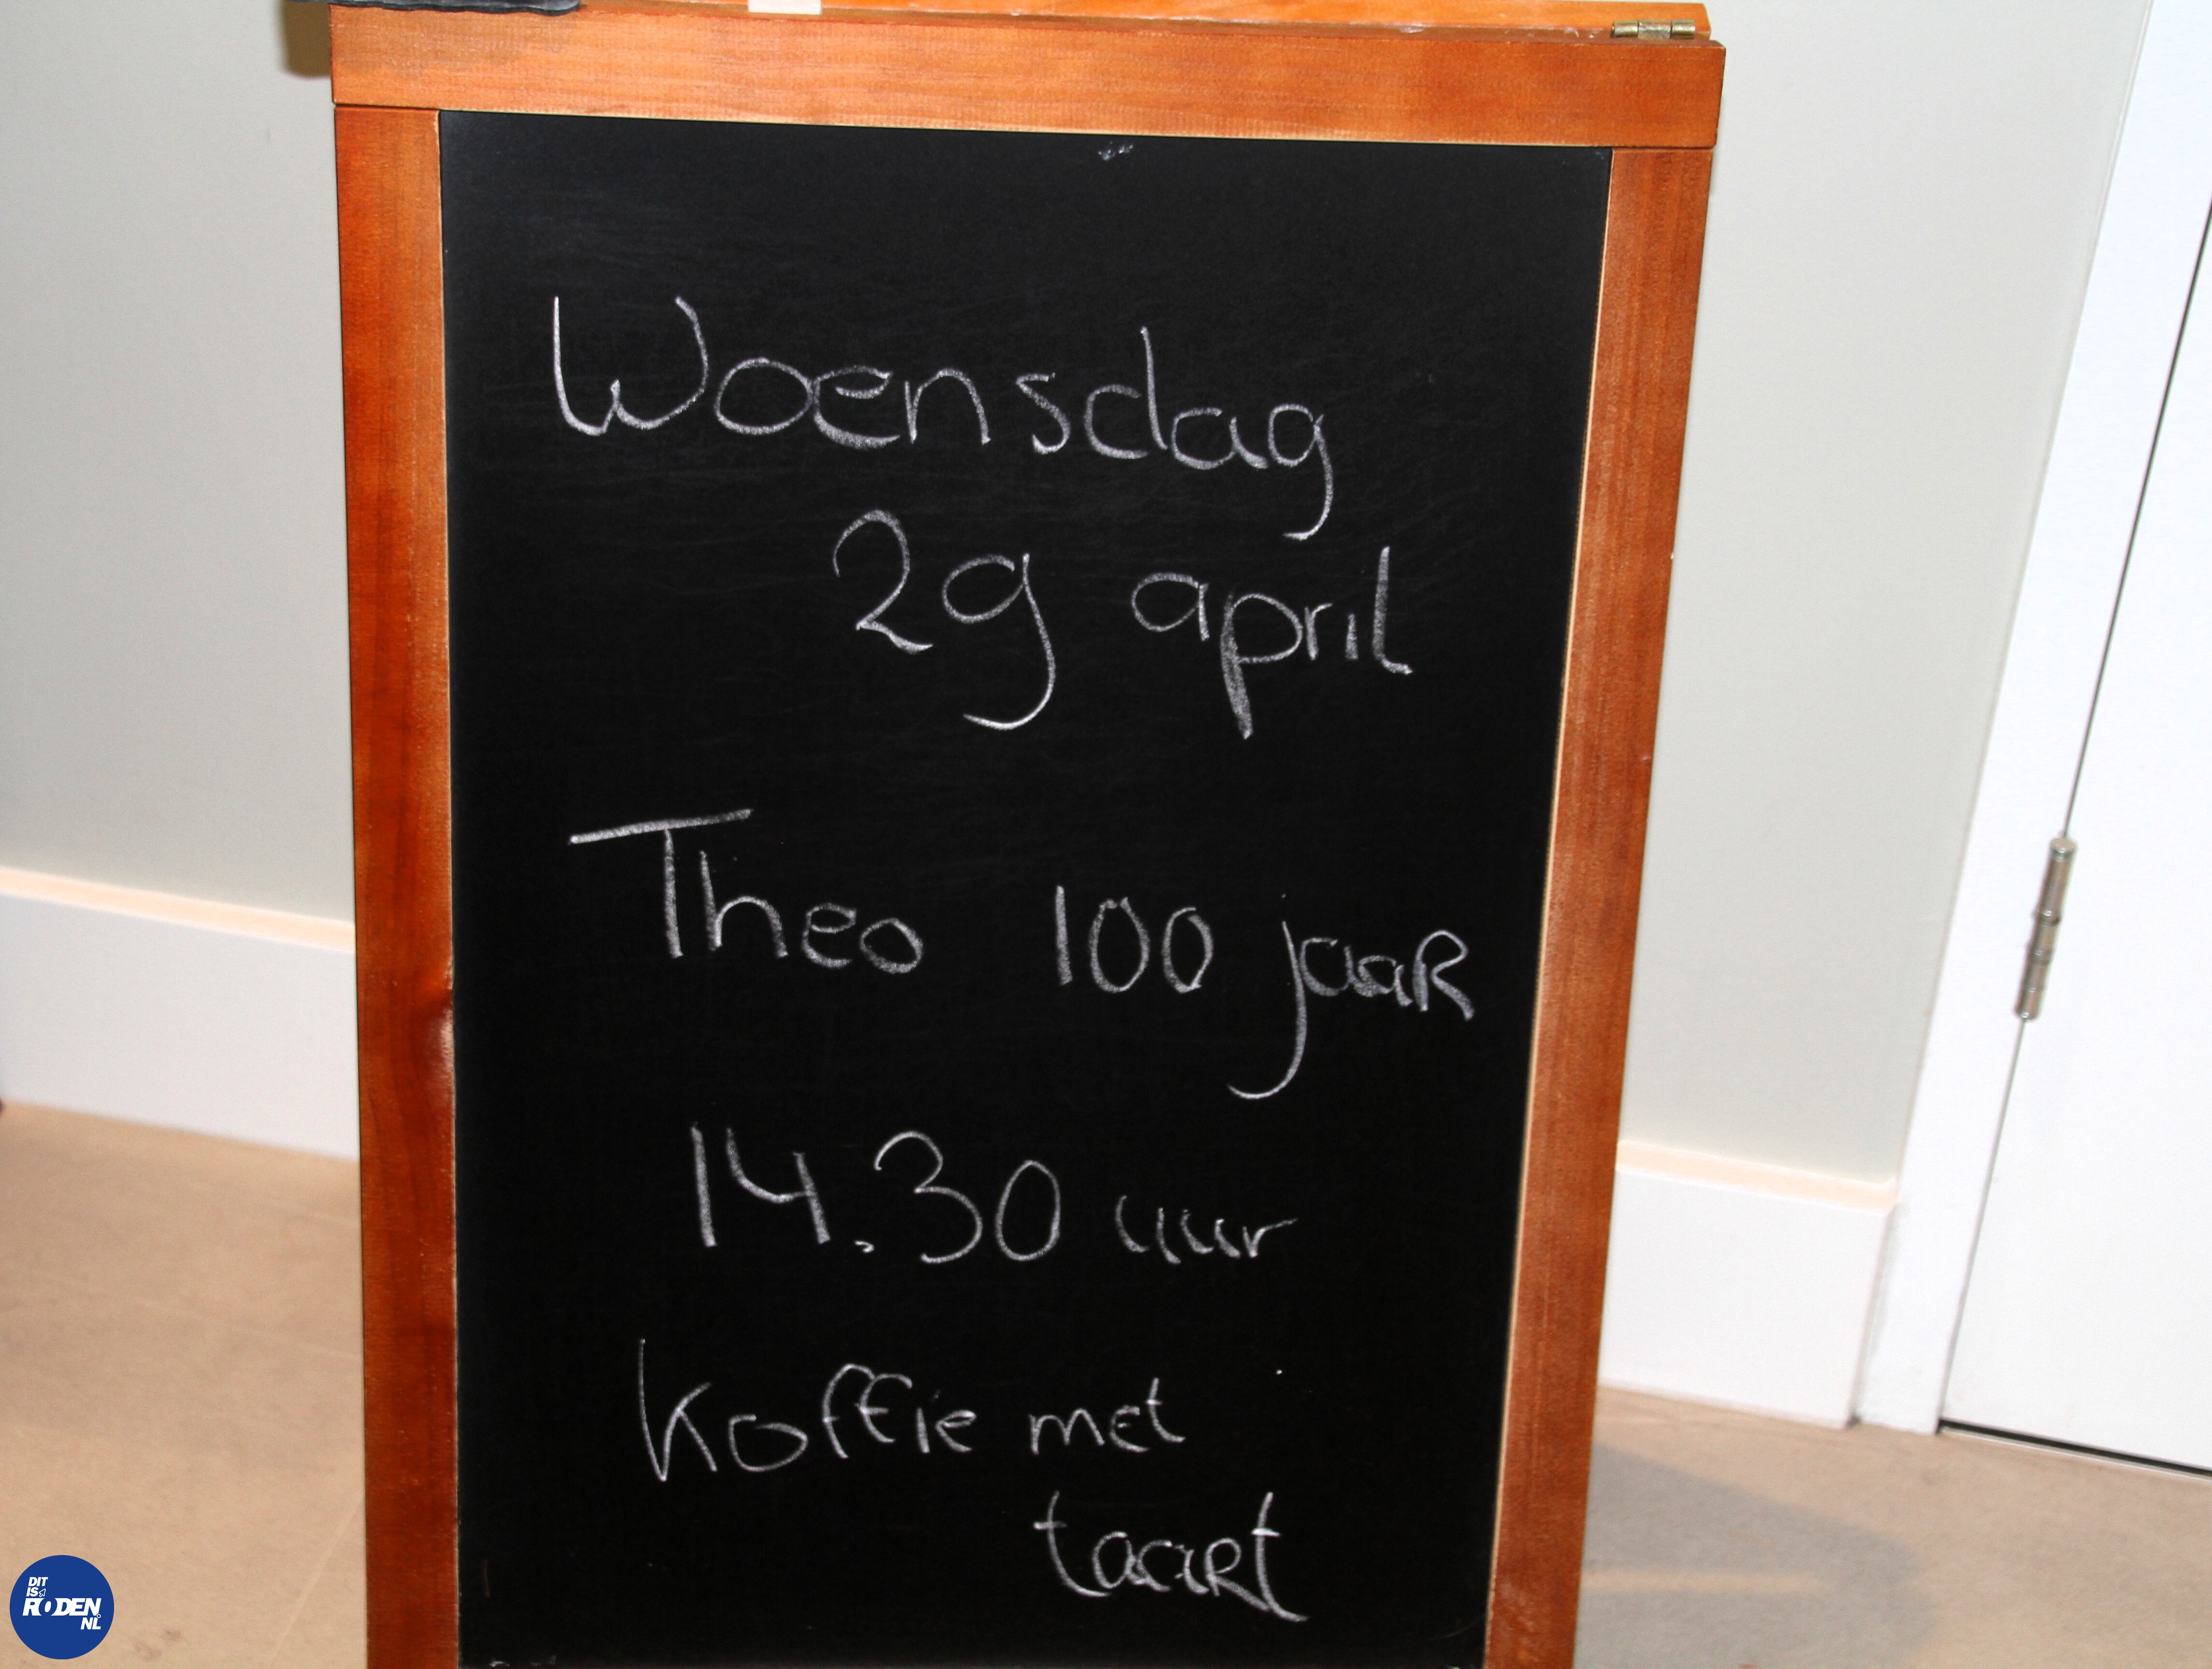 Woensdag
29 april
Theo 100 jaar
14.30 uur
Koffie met
taart
DIT
IS
RODEN
.NL